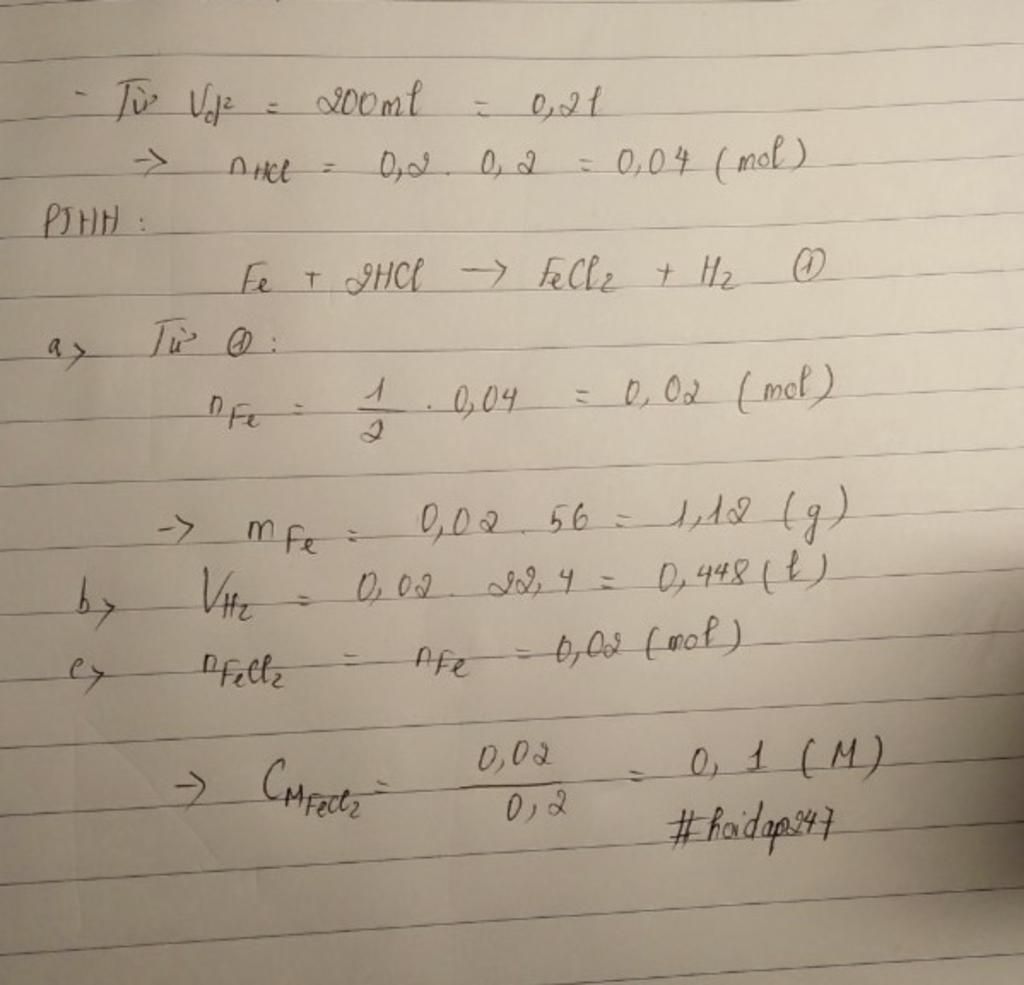 - Từ Vdd = 200ml = 0,2l
→ nHCl = 0,2 . 0,2 = 0,04 (mol)
PTHH :
Fe + 2HCl → FeCl2 + H2 ①
a> Từ ① :
nFe = 1/2 . 0,04 = 0,02 (mol)
→ mFe = 0,02 . 56 = 1,12 (g)
b> VH2 = 0,02 . 22,4 = 0,448 (l)
c> nFeCl2 = nFe = 0,02 (mol)
→ CMFeCl2 = 0,02/0,2 = 0,1 (M)
#hoidap247